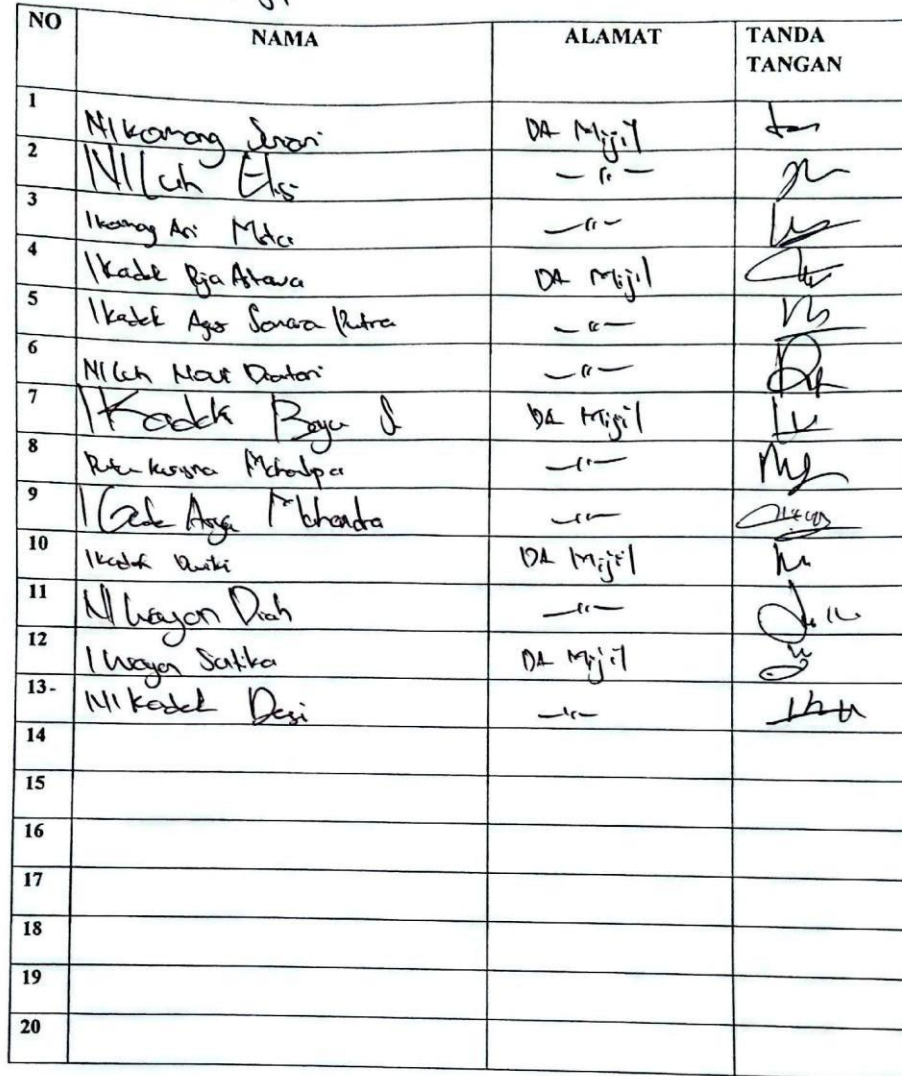 NO NAMA ALAMAT TANDA TANGAN
1 NI Komang Senari DA Mijil
2 NI Luh Elis — " —
3 I Komang Ari — " —
4 I Kadek Astawa DA Mijil
5 I Kadek Agus Putra — " —
6 NI Luh — " —
7 I Kadek Bayu S DA Mijil
8 Putu — " —
9 I Gede Arya Mahendra — " —
10 I Kadek Dwiki DA Mijil
11 NI Wayan Diah — " —
12 I Wayan Satika DA Mijil
13- NI Kadek Desi — " —
14
15
16
17
18
19
20